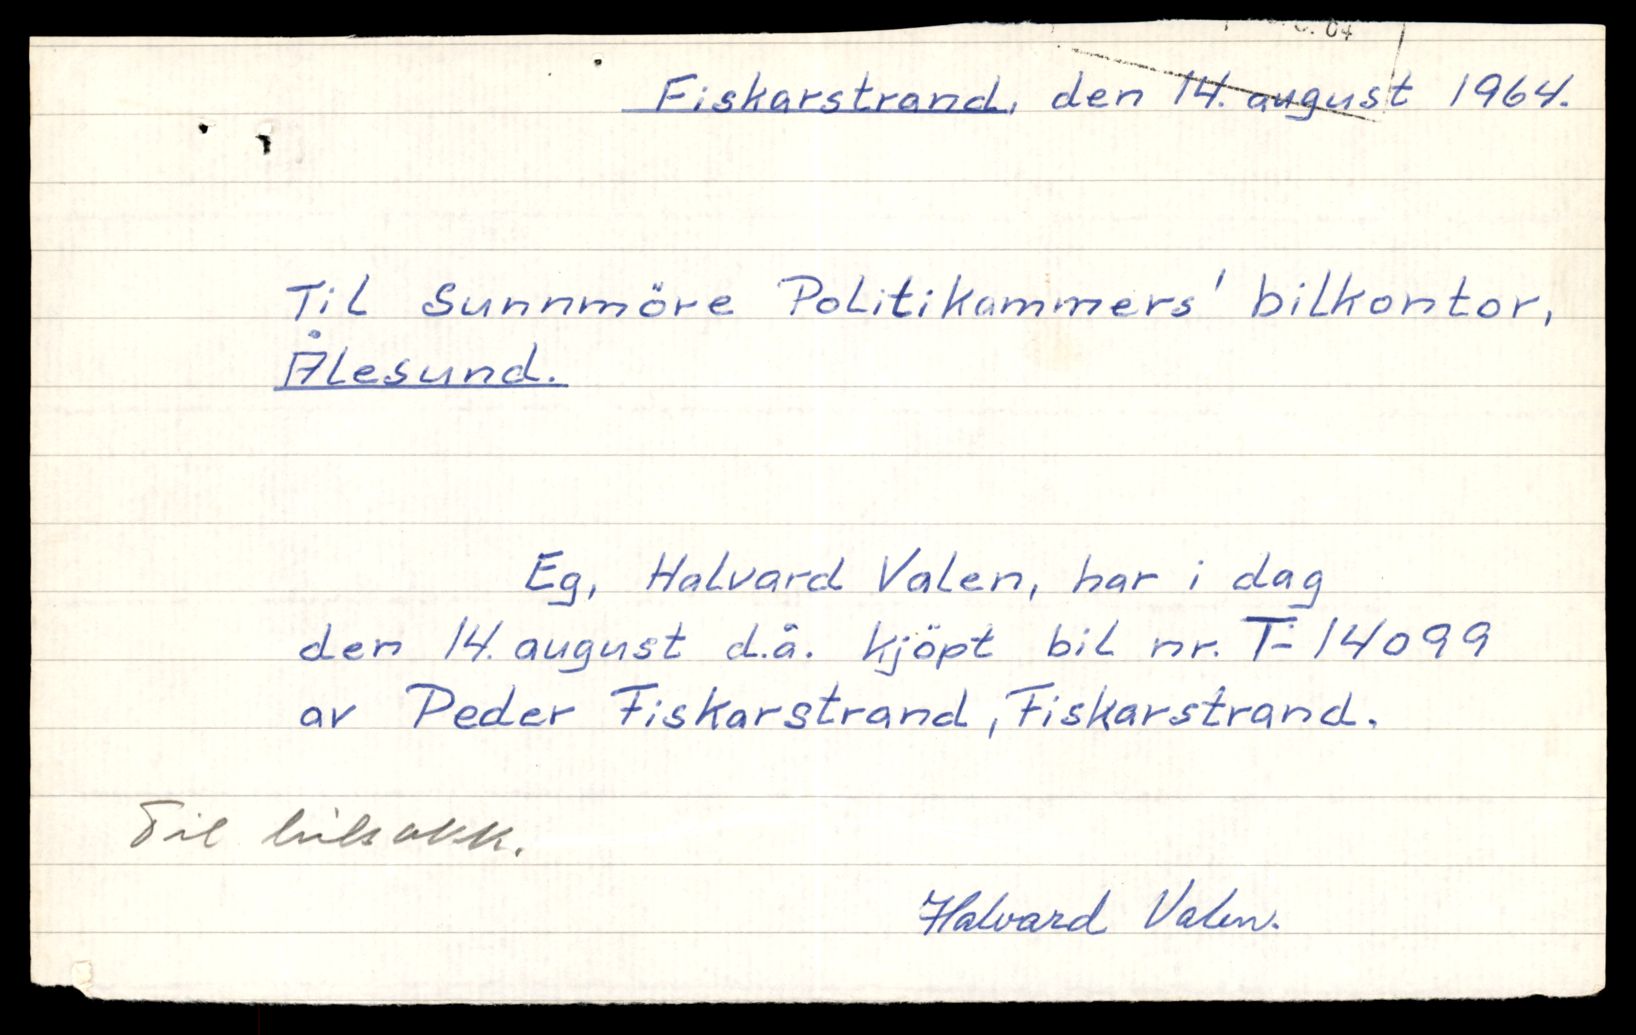 Fiskarstrand, den 14. august 1964.
Til Sunnmöre Politikammers' bilkontor,
Ålesund.
Eg, Halvard Valen, har i dag
den 14. august d.å. kjöpt bil nr. T-14099
av Peder Fiskarstrand, Fiskarstrand.
Til bilsakk.
Halvard Valen.